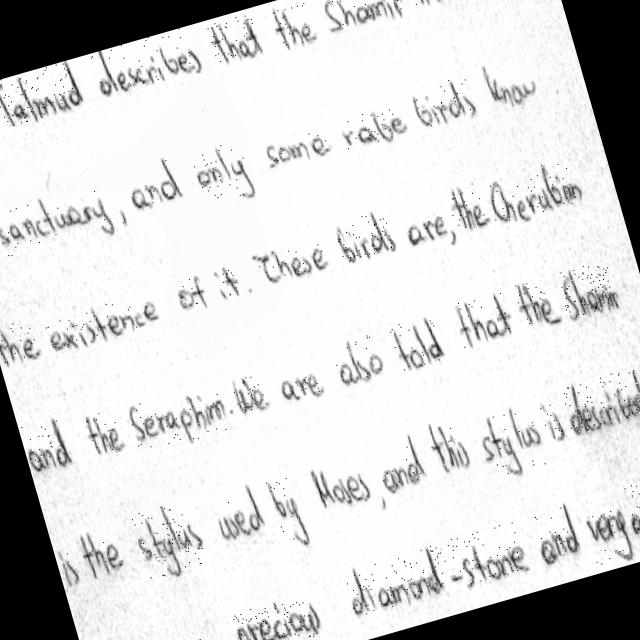 Talmud describes that the Shamir
sanctuary, and only some rare birds know
the existence of it. These birds are, the Cherubim
and the Seraphim. We are also told that the Shamir
is the stylus used by Moses, and this stylus is described
precious diamond-stone and very